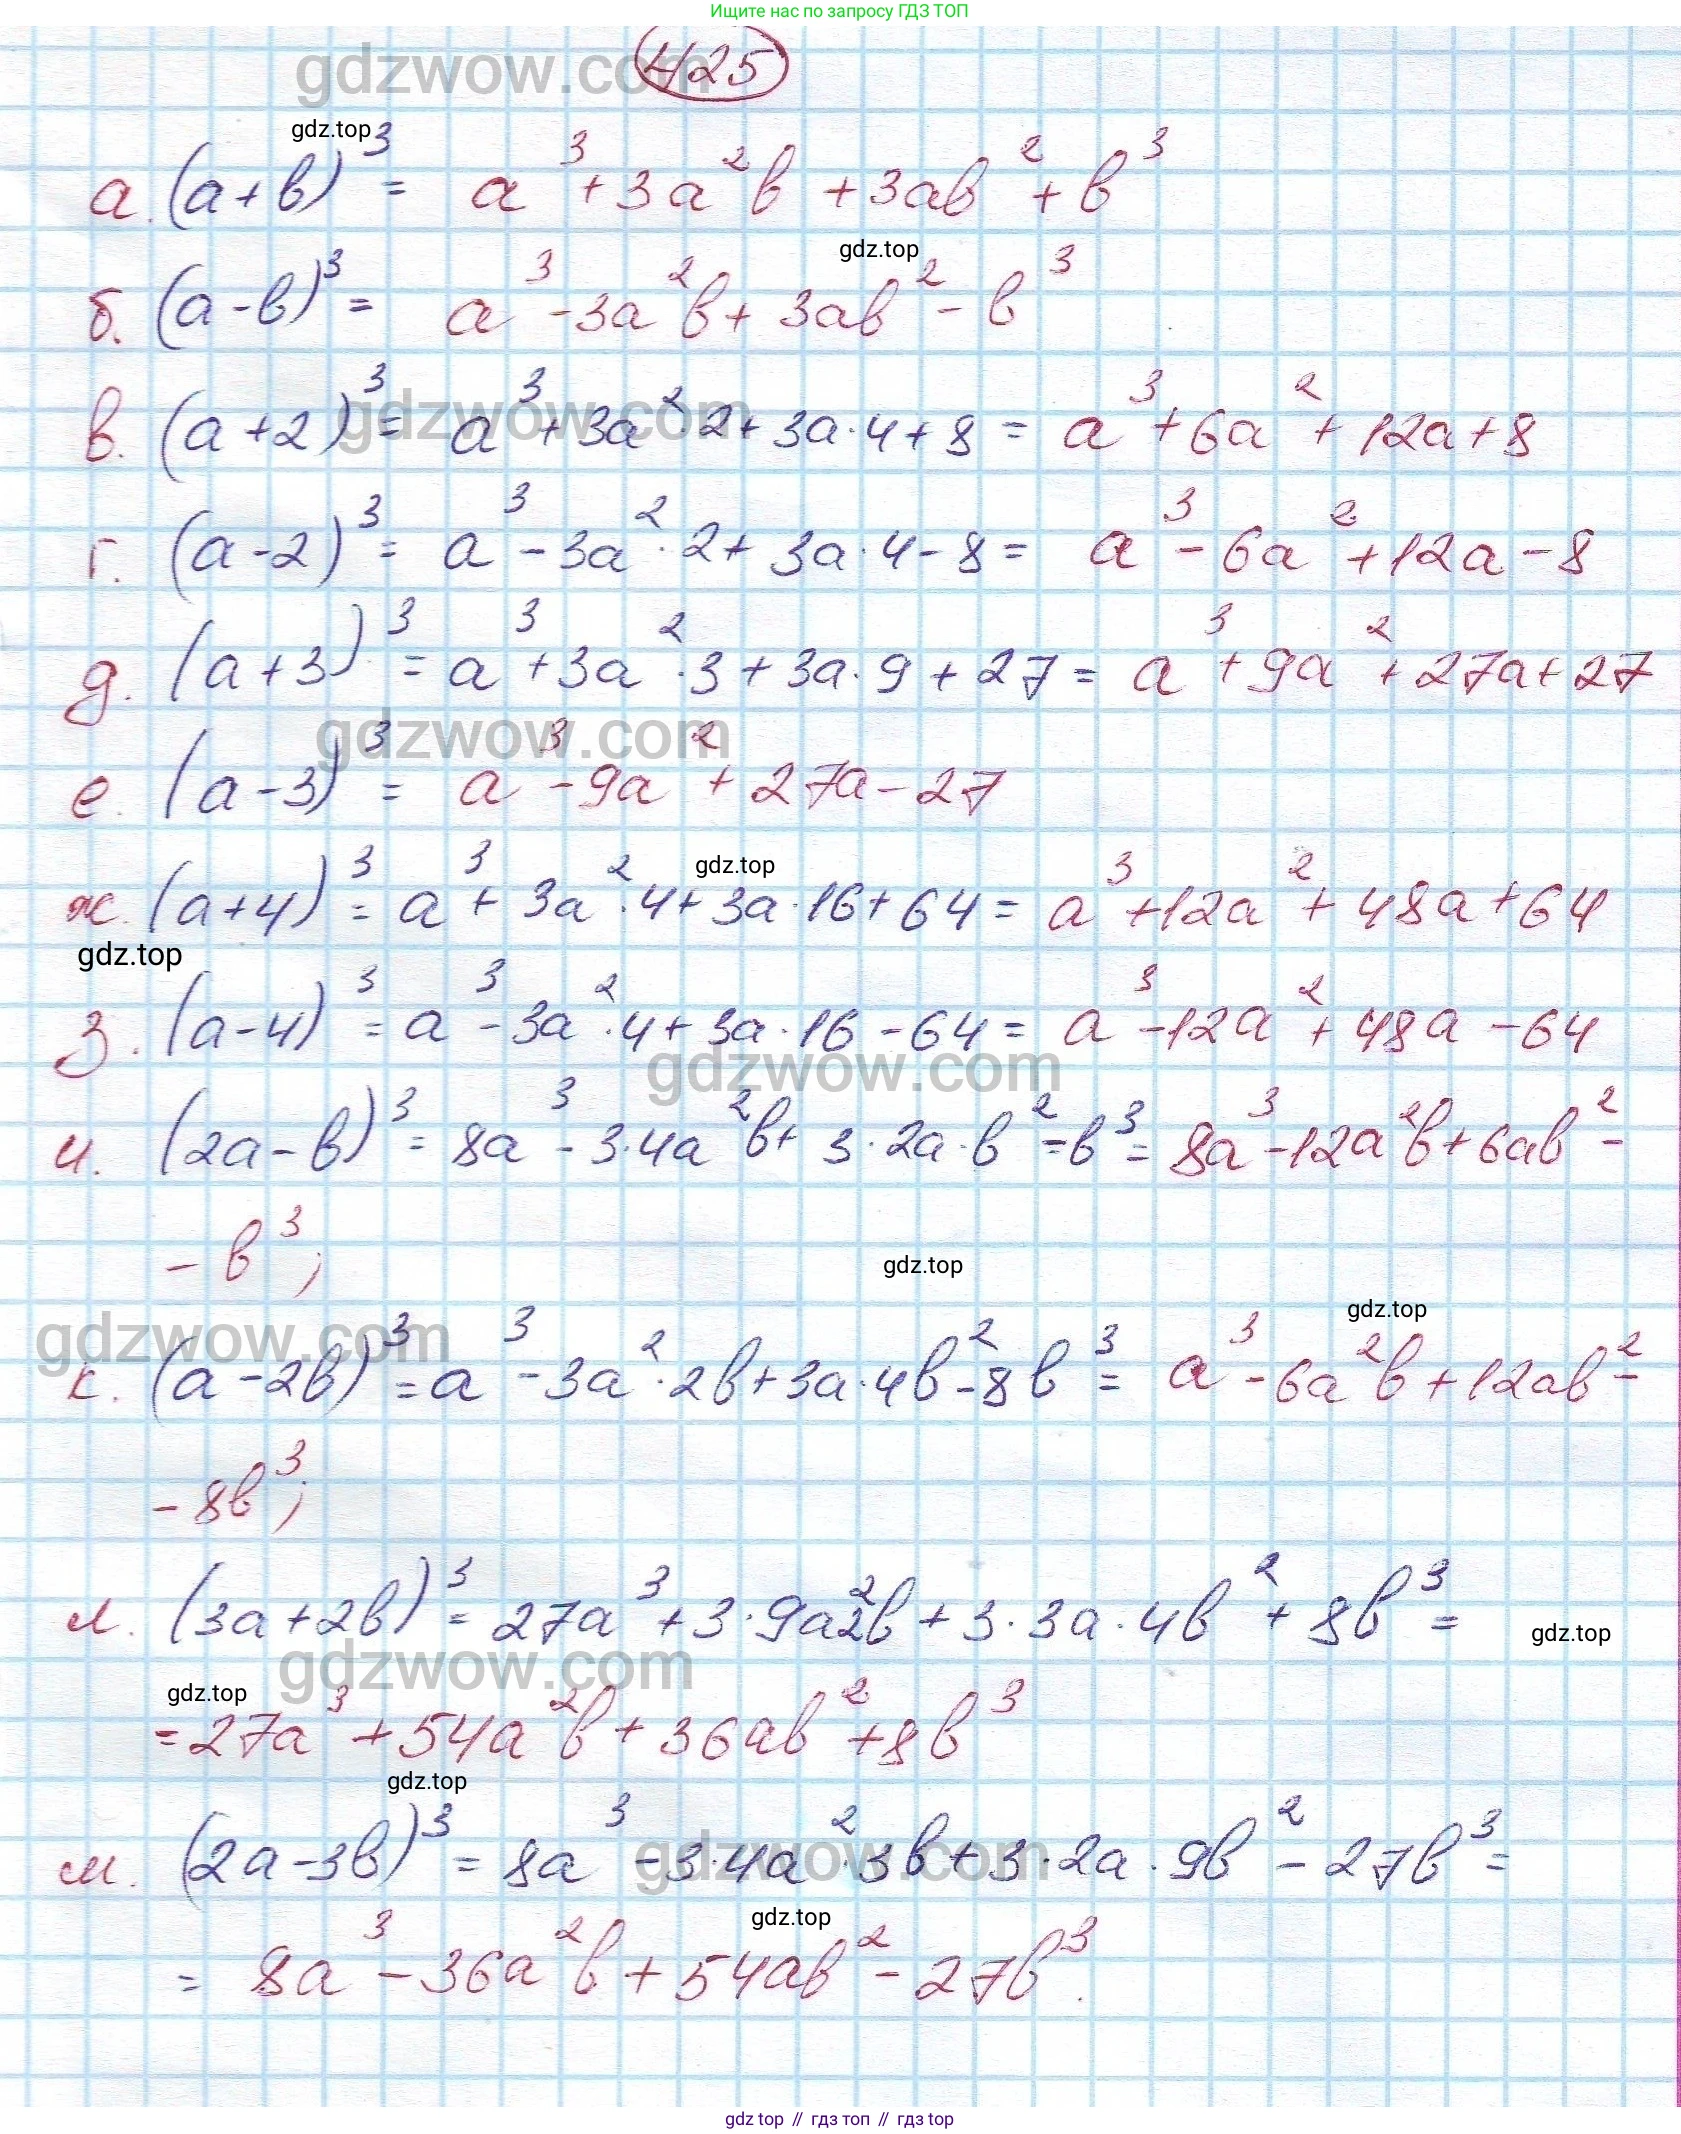 Ищите нас по запросу ГДЗ ТОП
gdzwow.com
425
gdz.top
а. (a+b)³ = a³+3a²b+3ab²+b³
gdz.top
б. (a-b)³ = a³-3a²b+3ab²-b³
gdzwow.com
в. (a+2)³ = a³+3a²·2+3a·4+8 = a³+6a²+12a+8
г. (a-2)³ = a³-3a²·2+3a·4-8 = a³-6a²+12a-8
д. (a+3)³ = a³+3a²·3+3a·9+27 = a³+9a²+27a+27
gdzwow.com
е. (a-3)³ = a³-9a²+27a-27
gdz.top
ж. (a+4)³ = a³+3a²·4+3a·16+64 = a³+12a²+48a+64
gdz.top
з. (a-4)³ = a³-3a²·4+3a·16-64 = a³-12a²+48a-64
gdzwow.com
и. (2a-b)³ = 8a³-3·4a²b+3·2a·b²-b³ = 8a³-12a²b+6ab²-
-b³;
gdz.top
gdz.top
gdzwow.com
к. (a-2b)³ = a³-3a²·2b+3a·4b²-8b³ = a³-6a²b+12ab²-
-8b³;
л. (3a+2b)³ = 27a³+3·9a²2b+3·3a·4b²+8b³ =
gdz.top
gdzwow.com
gdz.top
= 27a³+54a²b+36ab²+8b³
gdz.top
м. (2a-3b)³ = 8a³-3·4a²·3b+3·2a·9b²-27b³ =
gdzwow.com
gdz.top
= 8a³-36a²b+54ab²-27b³.
gdz top // гдз топ // gdz top